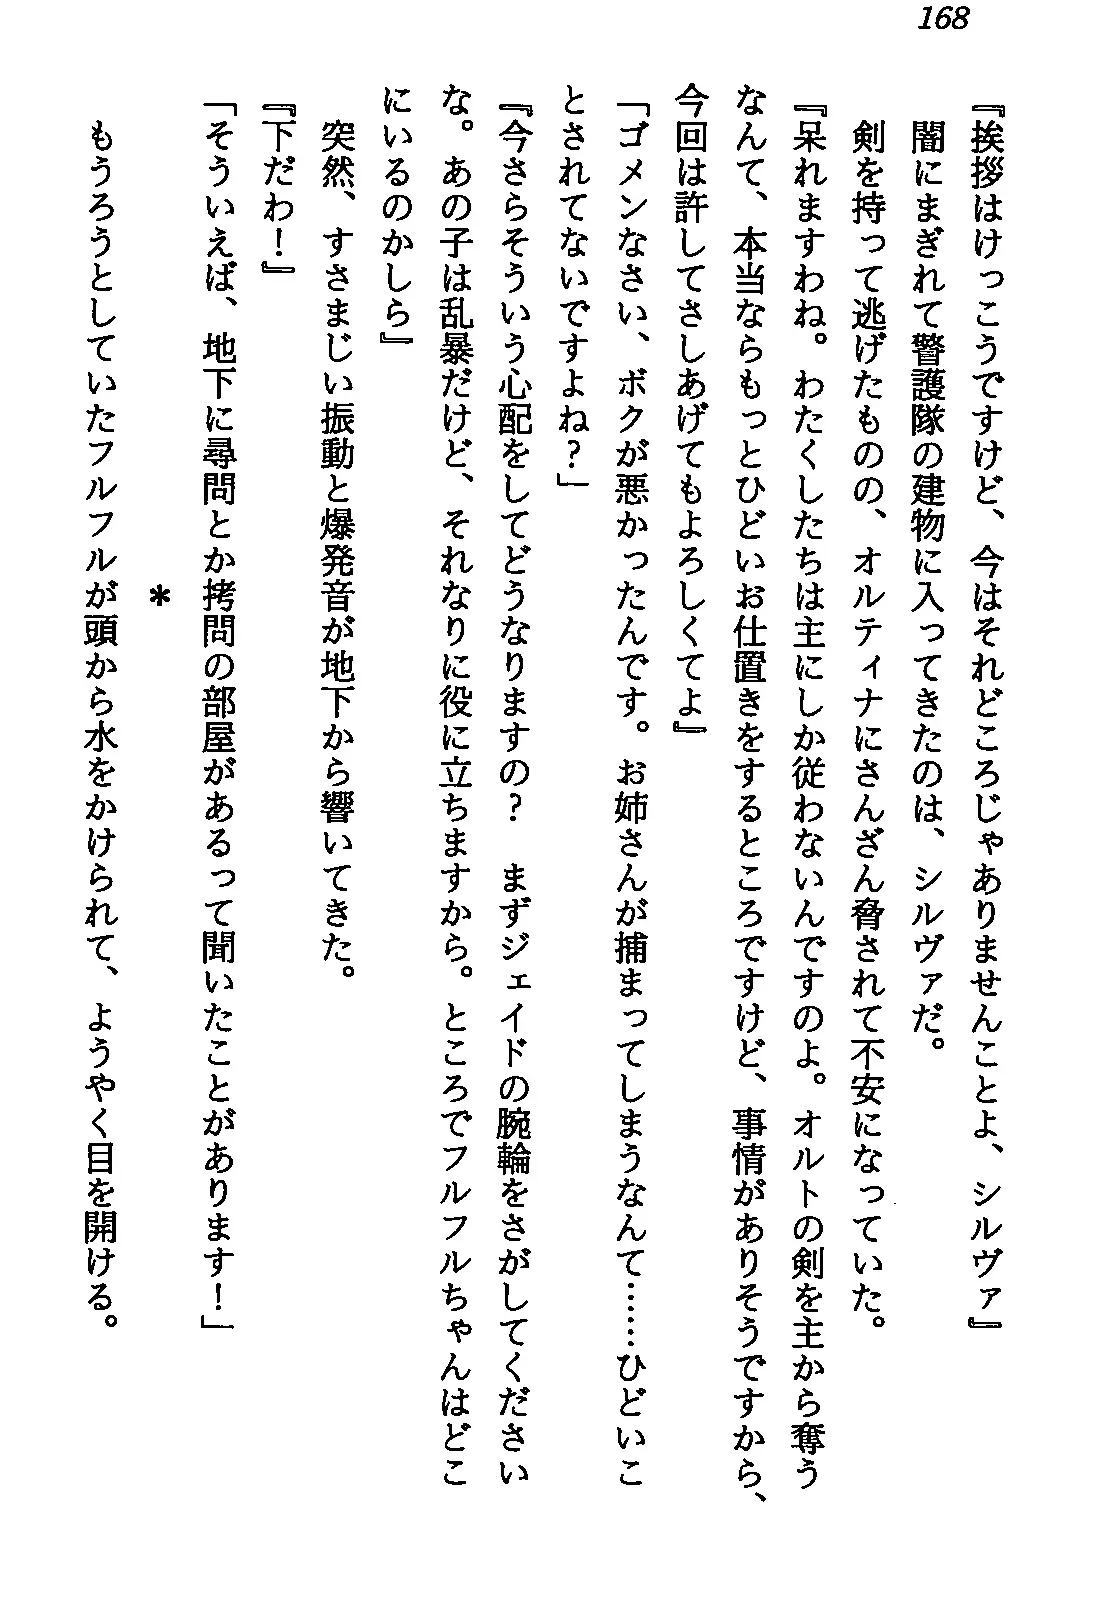 168
『挨拶はけっこうですけど、今はそれどころじゃありませんことよ、シルヴァ』
闇にまぎれて警護隊の建物に入ってきたのは、シルヴァだ。
剣を持って逃げたものの、オルティナにさんざん脅されて不安になっていた。
『呆れますわね。わたくしたちは主にしか従わないんですのよ。オルトの剣を主から奪う
なんて、本当ならもっとひどいお仕置きをするところですけど、事情がありそうですから、
今回は許してさしあげてもよろしくてよ』
「ゴメンなさい、ボクが悪かったんです。お姉さんが捕まってしまうなんて……ひどいこ
とされてないですよね？」
『今さらそういう心配をしてどうなりますの？　まずジェイドの腕輪をさがしてください
な。あの子は乱暴だけど、それなりに役に立ちますから。ところでフルフルちゃんはどこ
にいるのかしら』
突然、すさまじい振動と爆発音が地下から響いてきた。
『下だわ！』
「そういえば、地下に尋問とか拷問の部屋があるって聞いたことがあります！」
＊
もうろうとしていたフルフルが頭から水をかけられて、ようやく目を開ける。